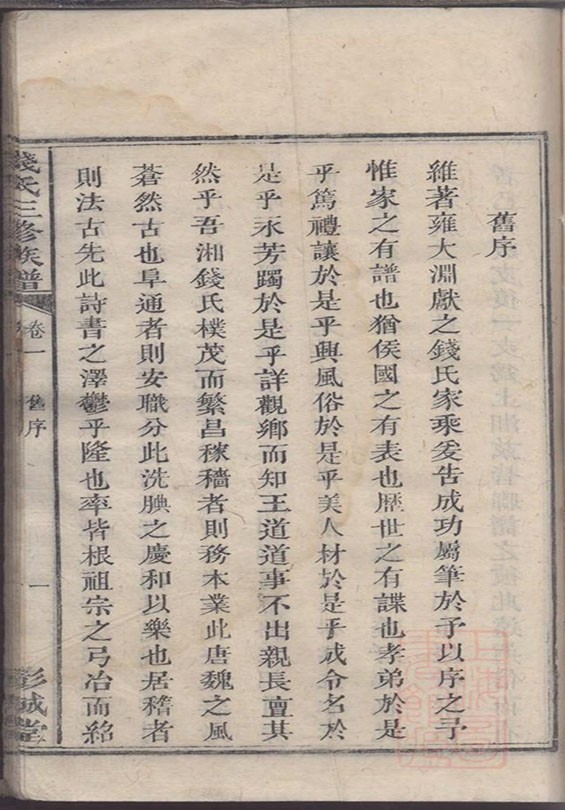 舊序
維著雍大淵獻之錢氏家乘爰告成功屬筆於予以序之予
惟家之有譜也猶侯國之有表也歷世之有諜也孝弟於是
乎篤禮讓於是乎興風俗於是乎美人材於是乎成令名於
是乎永芳躅於是乎詳觀鄉而知王道道事不出親長亶其
然乎吾湘錢氏樸茂而繁昌稼穡者則務本業此唐魏之風
蒼然古也阜通者則安職分此洗腆之慶和以樂也居稽者
則法古先此詩書之澤鬱乎隆也率皆根祖宗之弓冶而紹
錢氏三修族譜
卷一
舊序
一
彭城堂